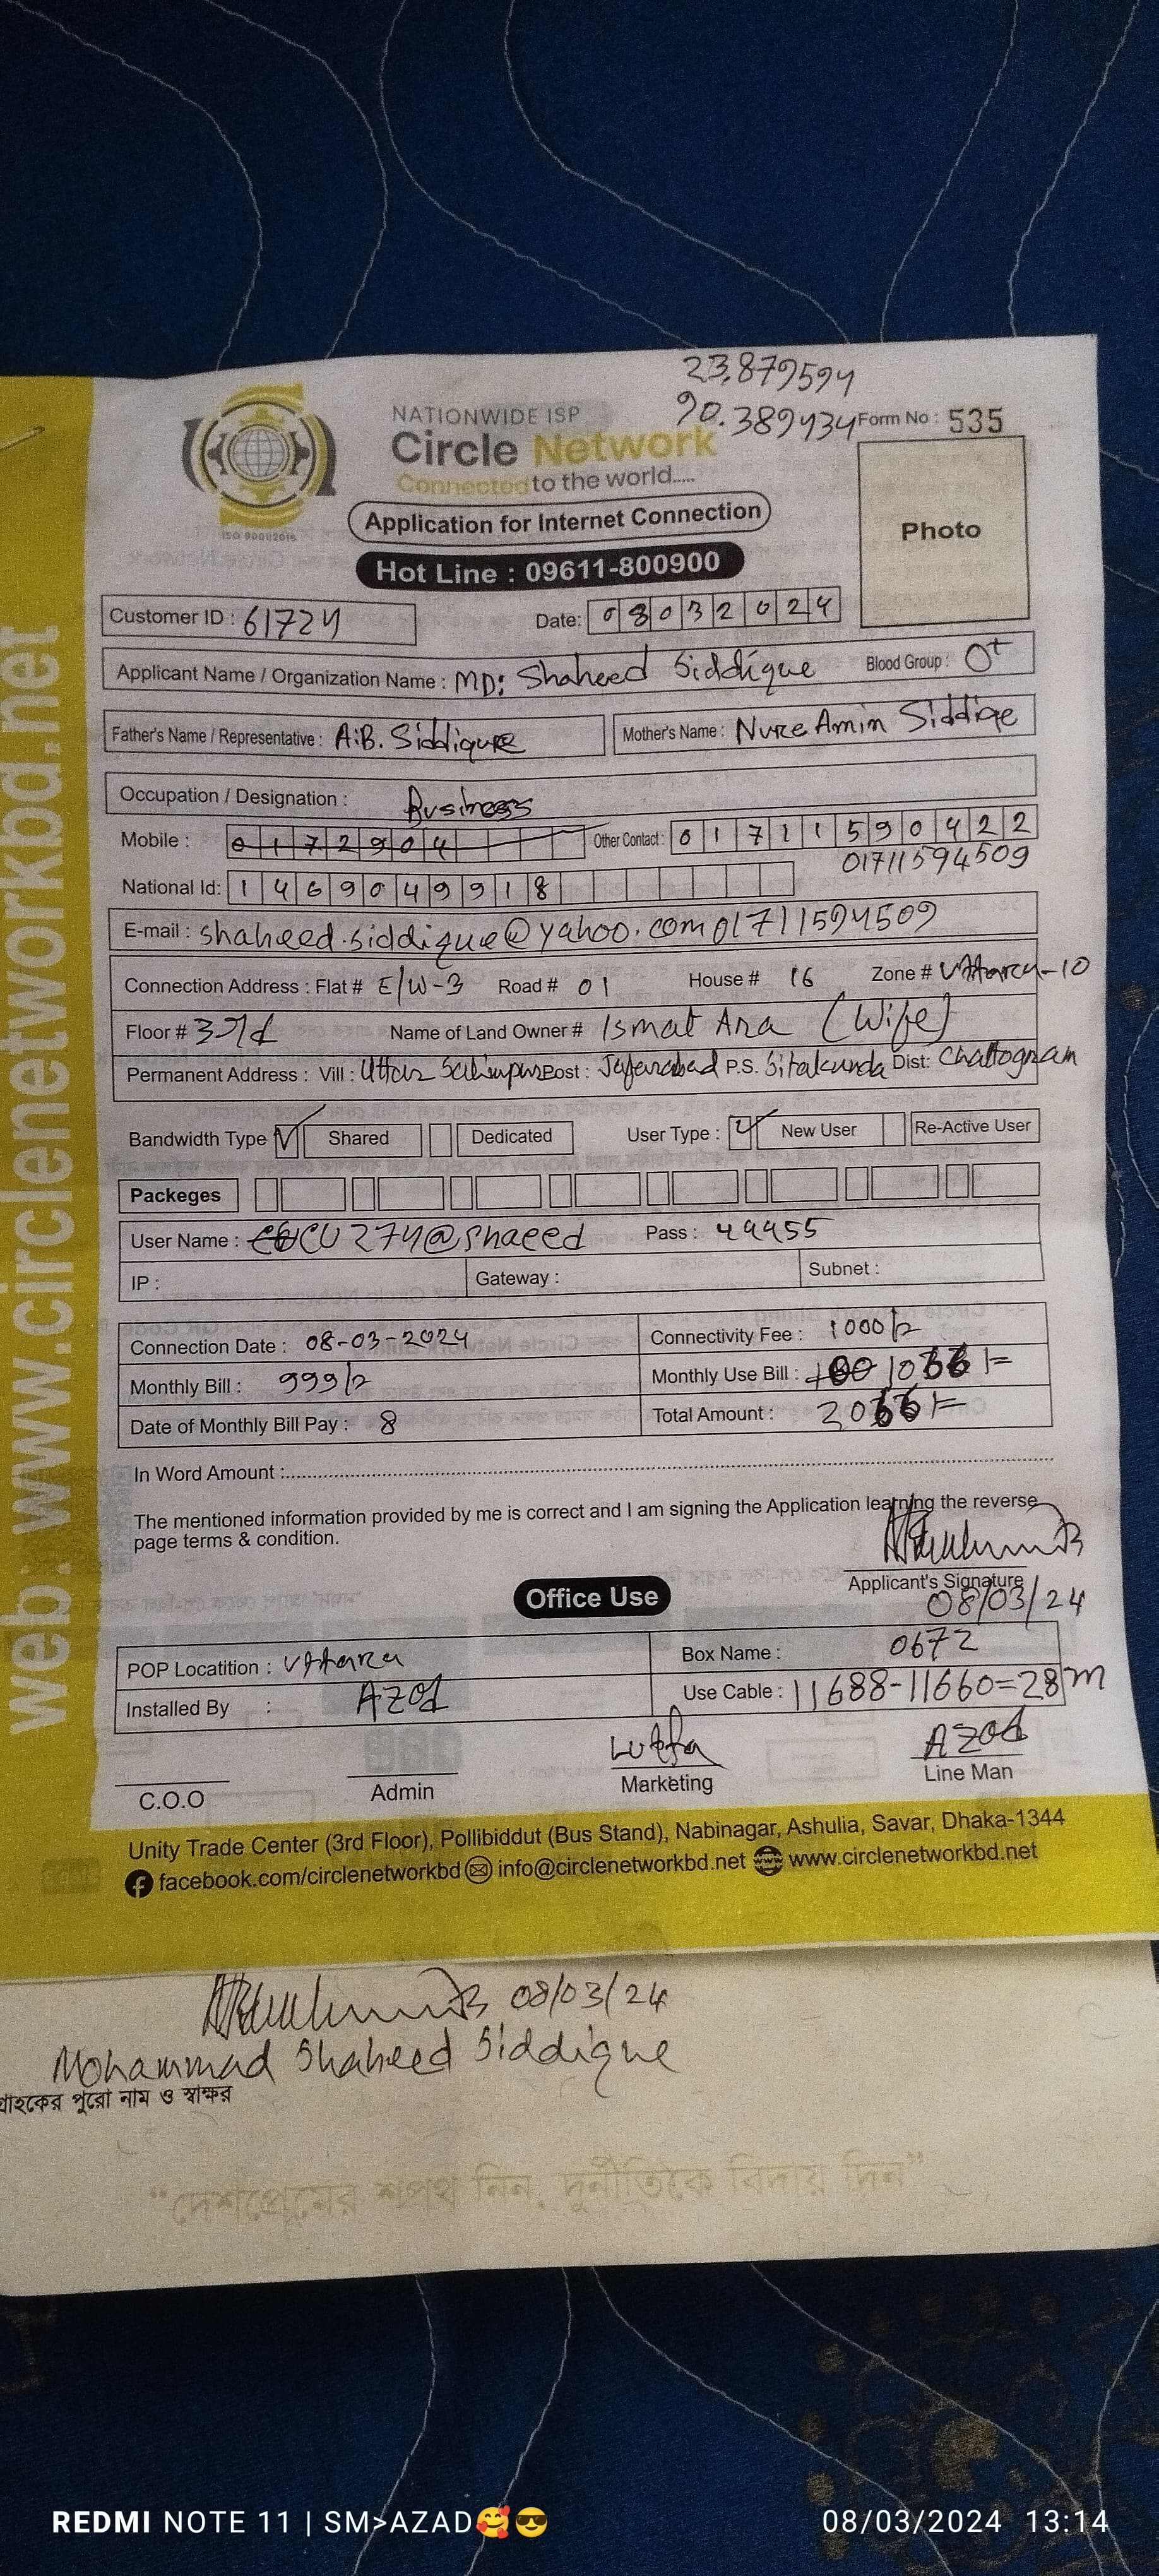 23.879594
90.389434
NATIONWIDE ISP
Circle Network
Connected to the world.....
ISO 9001:2016
Form No : 535
Photo
Application for Internet Connection
Hot Line : 09611-800900
Customer ID : 61724 Date: 08032024
Applicant Name / Organization Name : MD: Shaheed Siddique Blood Group : O+
Father's Name / Representative : A.B. Siddique Mother's Name : Nure Amin Siddiqe
Occupation / Designation : Business
Mobile : 0172904 Other Contact : 01711590422
01711594509
National Id: 1469049918
E-mail : shaheed.siddique@yahoo.com 01711594509
Connection Address : Flat # E/W-3 Road # 01 House # 16 Zone # Uttara-10
Floor # 3rd Name of Land Owner # Ismat Ara (Wife)
Permanent Address : Vill : Uttar Salimpur Post : Jafarabad P.S. Sitakunda Dist: Chattogram
Bandwidth Type Shared Dedicated User Type : New User Re-Active User
Packeges
User Name : CU274@shaeed Pass : 44455
IP : Gateway : Subnet :
Connection Date : 08-03-2024 Connectivity Fee : 1000/=
Monthly Bill : 999/= Monthly Use Bill : 1066/=
Date of Monthly Bill Pay : 8 Total Amount : 2066/=
In Word Amount :
The mentioned information provided by me is correct and I am signing the Application learning the reverse
page terms & condition.
Applicant's Signature
08/03/24
Office Use
POP Locatition : Uttara Box Name : 0672
Installed By : Azad Use Cable : 11688-11660=28m
Lutfa Azad
C.O.O Admin Marketing Line Man
Unity Trade Center (3rd Floor), Pollibiddut (Bus Stand), Nabinagar, Ashulia, Savar, Dhaka-1344
facebook.com/circlenetworkbd info@circlenetworkbd.net www.circlenetworkbd.net
web: www.circlenetworkbd.net
08/03/24
Mohammad Shaheed Siddique
গ্রাহকের পুরো নাম ও স্বাক্ষর
“দেশপ্রেমের শপথ নিন, দুর্নীতিকে বিদায় দিন”
REDMI NOTE 11 | SM>AZAD🥰😎 08/03/2024 13:14